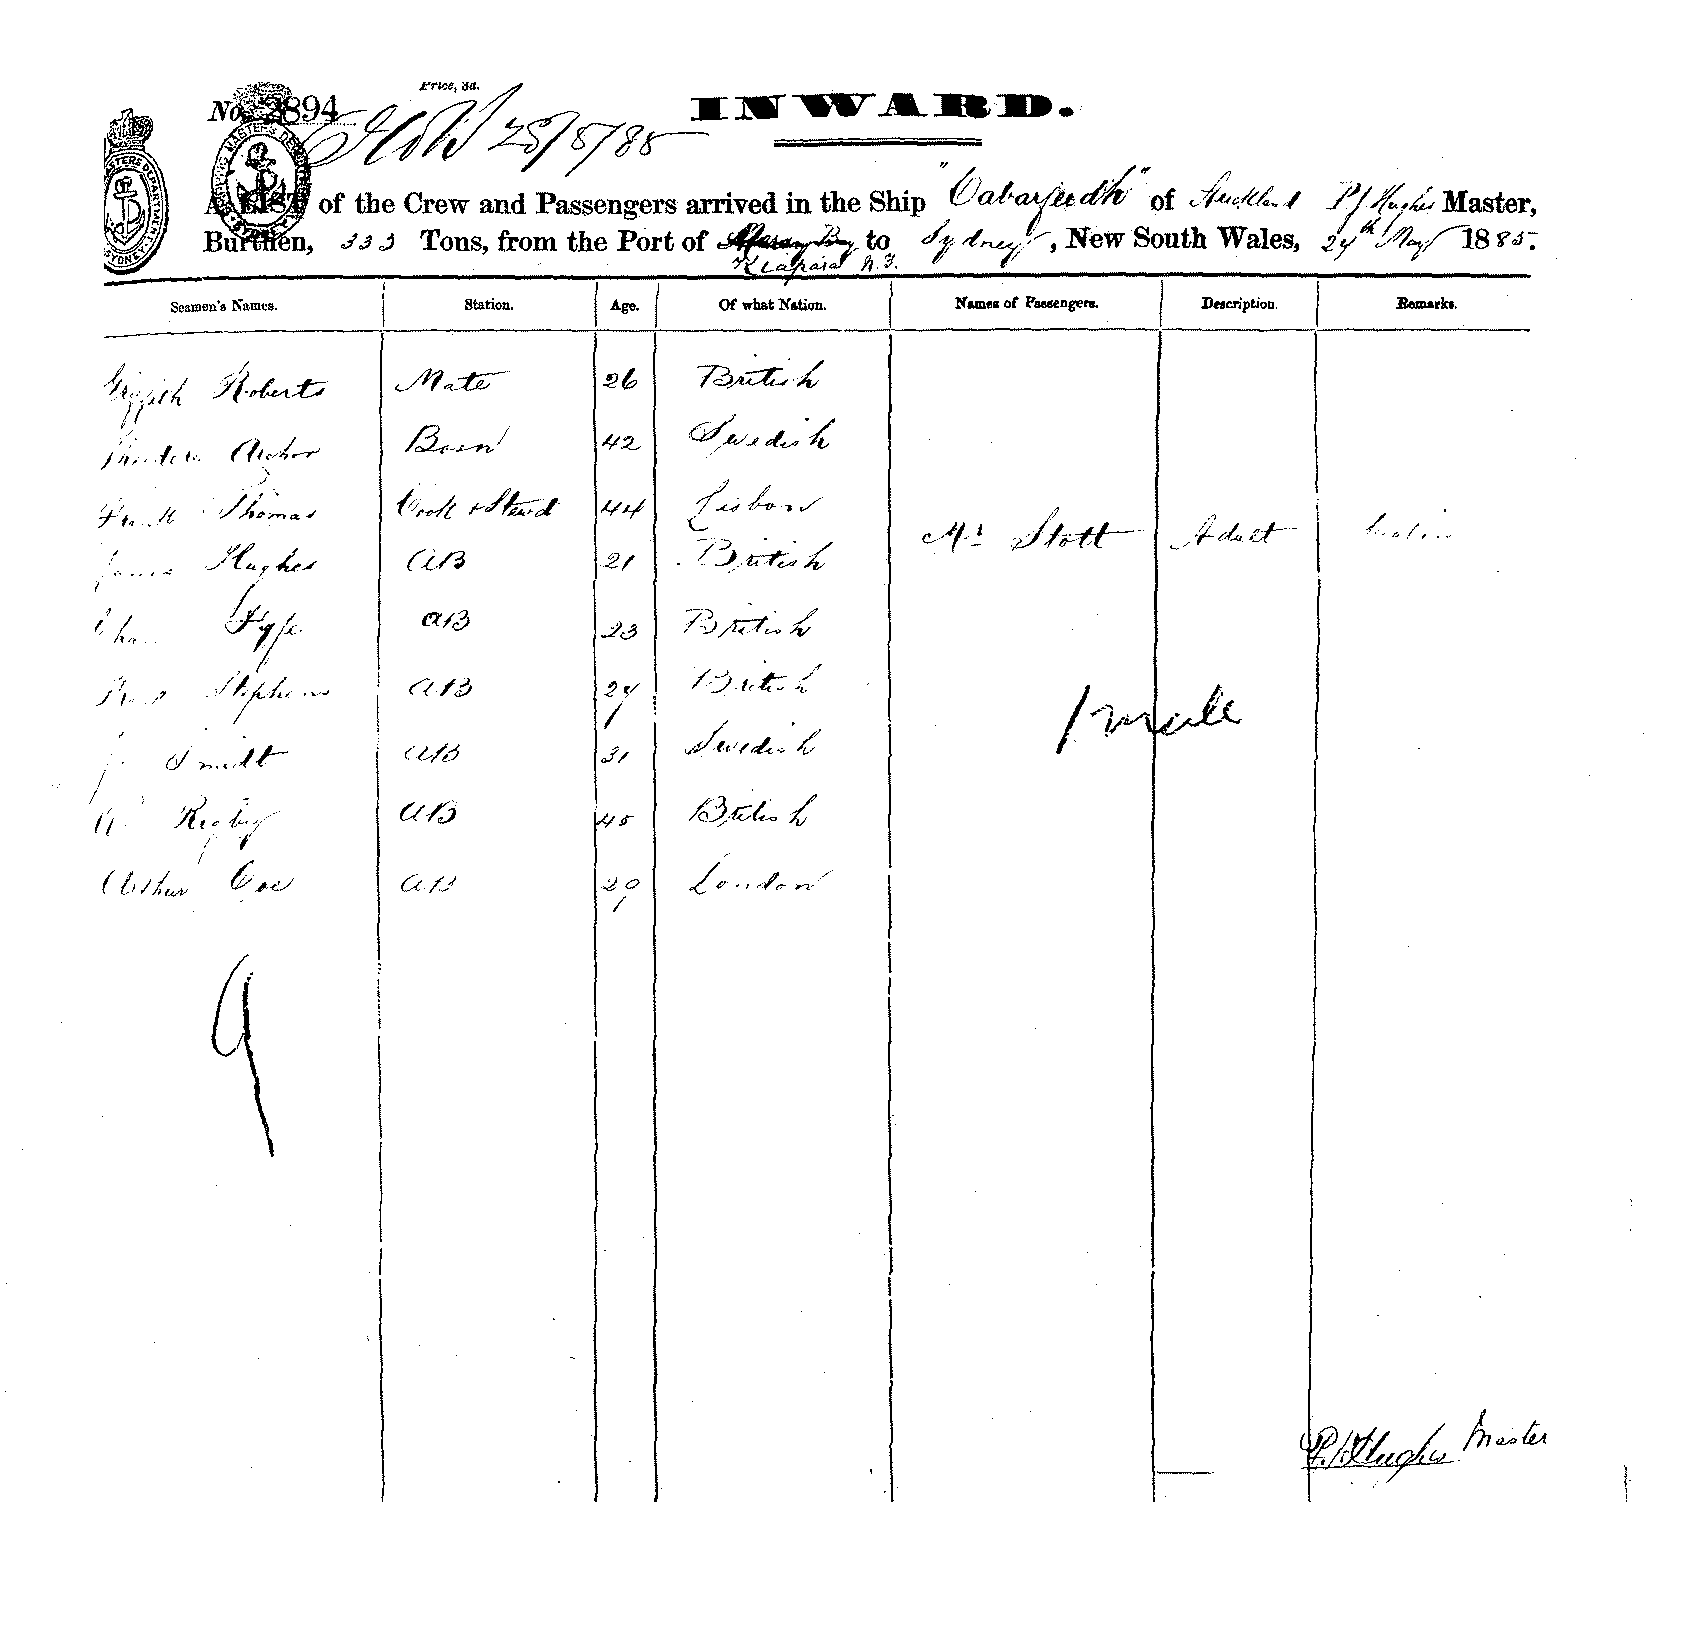 Price, 3d.
No. 2894
INWARD.
28/5/85
A LIST of the Crew and Passengers arrived in the Ship "Cabarfeidh" of Auckland P J Hughes Master,
Burthen, 333 Tons, from the Port of to Sydney, New South Wales, 24th May 1885.
Kiapara N.Z.
Seamen's Names. Station. Age. Of what Nation. Names of Passengers. Description. Remarks.
Griffith Roberts Mate 26 British
Archor Bosn 42 Swedish
Frank Thomas Cook & Stewd 44 Lisbon
Mr Stott Adult
James Hughes AB 21 British
Chas Fyfe AB 23 British
Stephens AB 27 British
1 male
J Smidt AB 31 Swedish
Rigby AB 40 British
Arthur Coe AB 29 London
9
P. J. Hughes Master